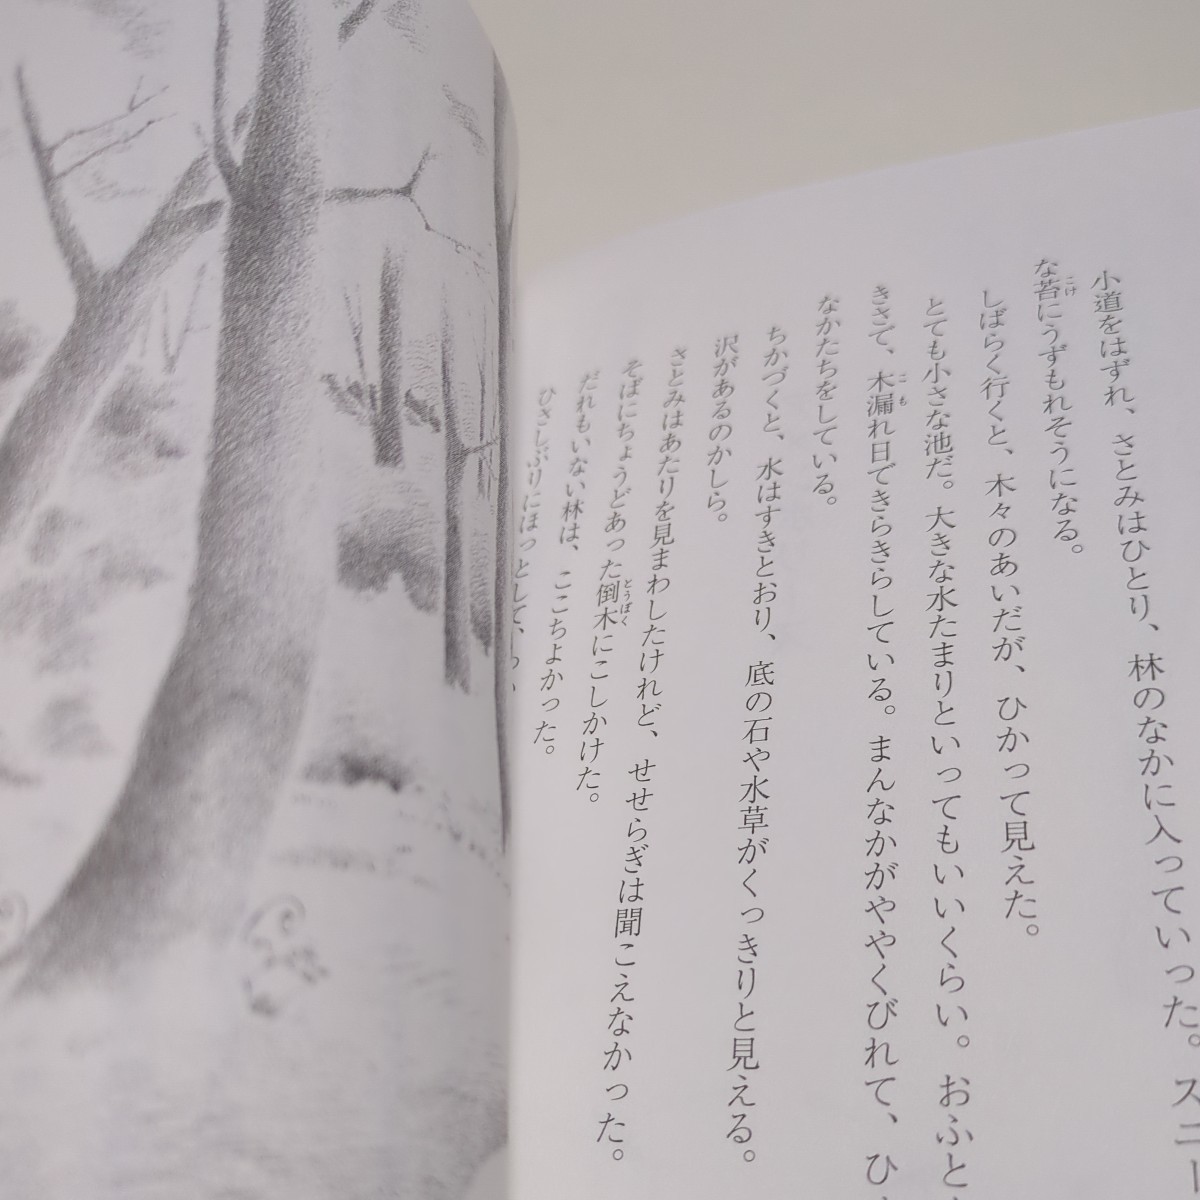 小道をはずれ、さとみはひとり、林のなかに入っていった。スニー
な苔にうずもれそうになる。
しばらく行くと、木々のあいだが、ひかって見えた。
とても小さな池だ。大きな水たまりといってもいいくらい。おふと
きさで、木漏れ日できらきらしている。まんなかがややくびれて、ひ
なかたちをしている。
ちかづくと、水はすきとおり、底の石や水草がくっきりと見える。
沢があるのかしら。
さとみはあたりを見まわしたけれど、せせらぎは聞こえなかった。
そばにちょうどあった倒木にこしかけた。
だれもいない林は、ここちよかった。
ひさしぶりにほっとして、